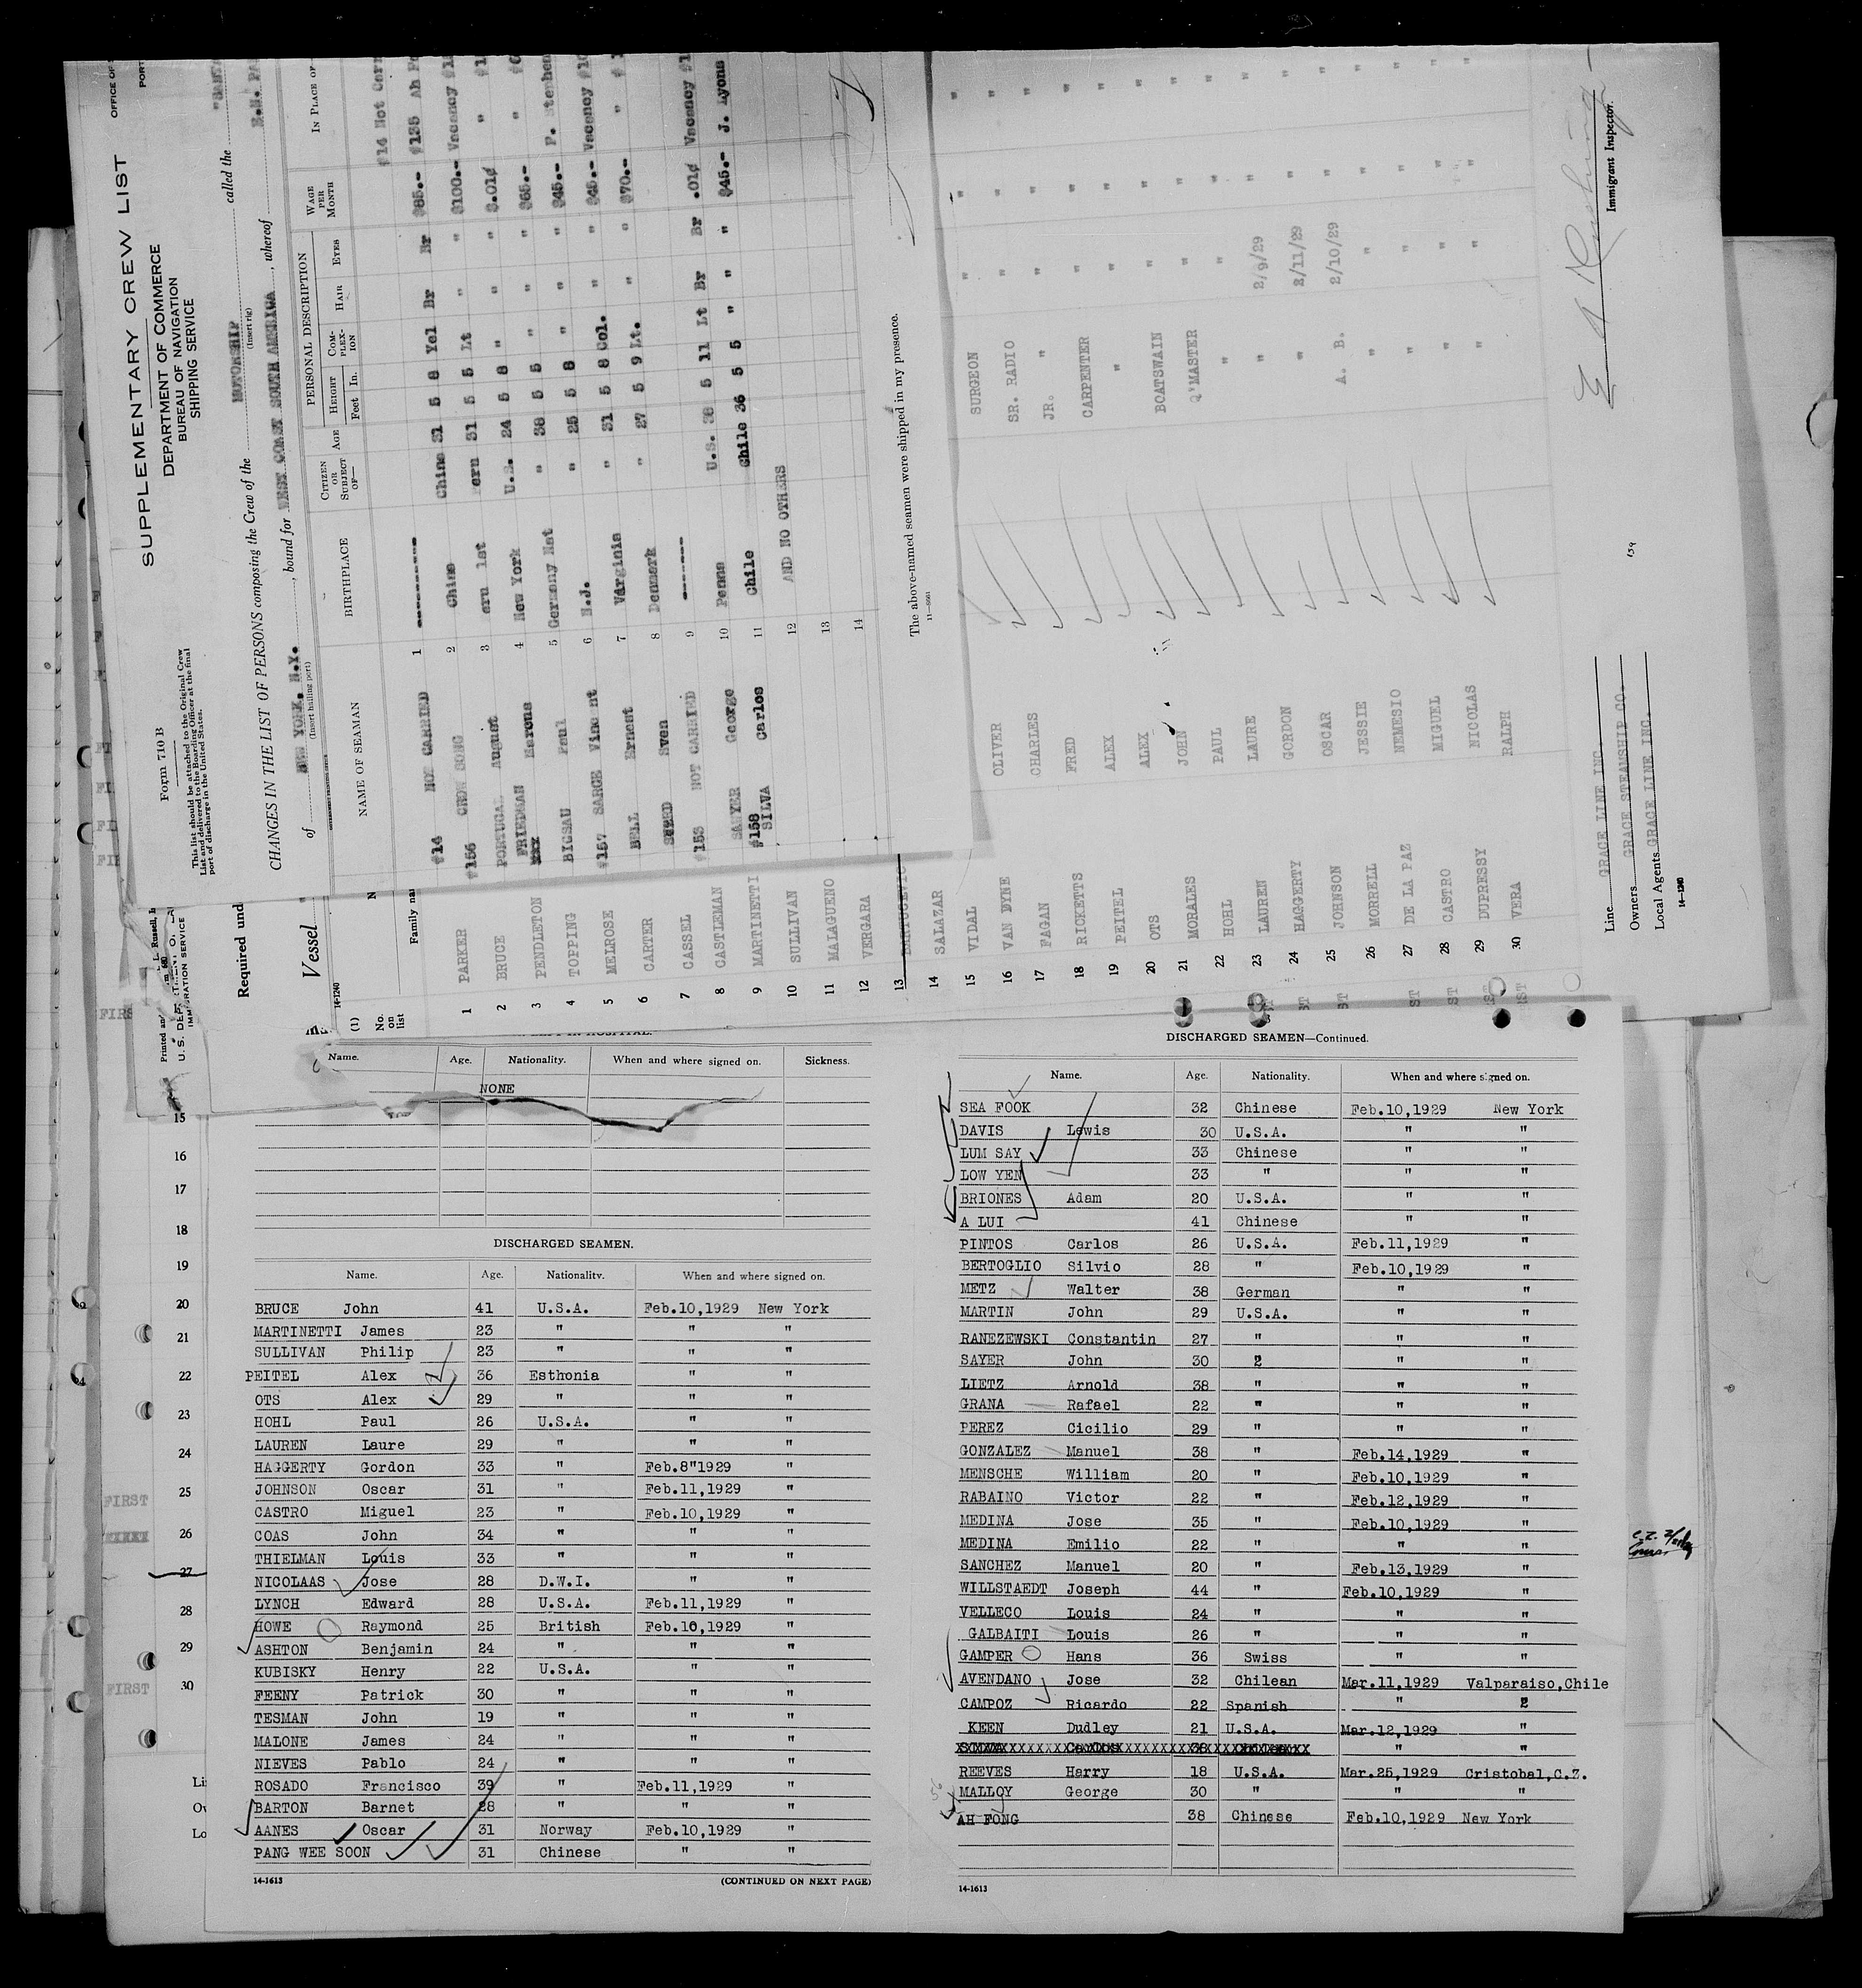 SUPPLEMENTARY CREW LIST
DEPARTMENT OF COMMERCE
BUREAU OF NAVIGATION
SHIPPING SERVICE
Form 710 B
This list should be attached to the Original Crew
List and delivered to the Boarding Officer at the final
port of discharge in the United States.
CHANGES IN THE LIST OF PERSONS composing the Crew of the MOTORSHIP called the
(Insert rig)
of NEW YORK. N.Y., bound for WEST COAST SOUTH AMERICA, whereof
(Insert hailing port)
NAME OF SEAMAN BIRTHPLACE CITIZEN OR SUBJECT OF— AGE PERSONAL DESCRIPTION HEIGHT Feet In. COMPLEXION HAIR EYES WAGE PER MONTH IN PLACE OF
#14 NOT CARRIED 1 ---------
#156 CHOW SONG 2 China China 31 5 8 Yel Br Br $85.-
PORTUGAL August 3 31 5 5 Lt " " $100.- Vacancy
FRIEDMAN Marcus 4 New York U.S. 24 5 8 " " " $.01¢ "
BIGSAU Paul 5 Germany Nat " 38 5 5 " " " $65.- "
#157 SARGE Vincent 6 N.J. " 25 5 8 " " " $45.-
BELL Ernest 7 Virginia " 31 5 8 Col. " " $45.- Vacancy
Sven 8 Denmark " 27 5 9 Lt. " " $70.- "
#153 NOT CARRIED 9 ------
SAWYER George 10 Penna U.S. 38 5 11 Lt Br Br .01¢ Vacancy
#158 SILVA Carlos 11 Chile Chile 36 5 5 " " " $45.- J. Lyons
12 AND NO OTHERS
13
14
The above-named seamen were shipped in my presence.
Required und
Vessel
14-1240
(1)
No. on list
1 PARKER
2 BRUCE
3 PENDLETON
4 TOPPING
5 MELROSE
6 CARTER
7 CASSEL
8 CASTLEMAN
9 MARTINETTI
10 SULLIVAN
11 MALAGUENO
12 VERGARA
13
14 SALAZAR
15 VIDAL OLIVER SURGEON
16 VAN DYNE CHARLES SR. RADIO
17 FAGAN FRED JR. "
18 RICKETTS ALEX CARPENTER
19 PEITEL ALEX "
20 OTS JOHN BOATSWAIN
21 MORALES PAUL Q'MASTER
22 HOHL LAURE "
23 LAUREN GORDON " 2/9/29
24 HAGGERTY OSCAR " 2/11/29
25 JOHNSON JESSIE A. B. 2/10/29
26 MORRELL NEMESIO " "
27 DE LA PAZ MIGUEL " "
28 CASTRO NICOLAS " "
29 DUPRESSY RALPH " "
30 VERA
Immigrant Inspector.
Line GRACE LINE INC.
Owners GRACE STEAMSHIP CO.
Local Agents GRACE LINE INC.
14-1240
Name. Age. Nationality. When and where signed on. Sickness.
NONE
DISCHARGED SEAMEN.
Name. Age. Nationality. When and where signed on.
BRUCE John 41 U.S.A. Feb.10,1929 New York
MARTINETTI James 23 " " "
SULLIVAN Philip 23 " " "
PEITEL Alex 36 Esthonia " "
OTS Alex 29 " " "
HOHL Paul 26 U.S.A. " "
LAUREN Laure 29 " " "
HAGGERTY Gordon 33 " Feb.8"1929 "
JOHNSON Oscar 31 " Feb.11,1929 "
CASTRO Miguel 23 " Feb.10,1929 "
COAS John 34 " " "
THIELMAN Louis 33 " " "
NICOLAAS Jose 28 D.W.I. " "
LYNCH Edward 28 U.S.A. Feb.11,1929 "
HOWE Raymond 25 British Feb.10,1929 "
ASHTON Benjamin 24 " " "
KUBISKY Henry 22 U.S.A. " "
FEENY Patrick 30 " " "
TESMAN John 19 " " "
MALONE James 24 " " "
NIEVES Pablo 24 " " "
ROSADO Francisco 39 " Feb.11,1929 "
BARTON Barnet 28 " " "
AANES Oscar 31 Norway Feb.10,1929 "
PANG WEE SOON 31 Chinese " "
14-1613 (CONTINUED ON NEXT PAGE)
DISCHARGED SEAMEN—Continued.
Name. Age. Nationality. When and where signed on.
SEA FOOK 32 Chinese Feb.10,1929 New York
DAVIS Lewis 30 U.S.A. " "
LUM SAY 33 Chinese " "
LOW YEN 33 " " "
BRIONES Adam 20 U.S.A. " "
A LUI 41 Chinese " "
PINTOS Carlos 26 U.S.A. Feb.11,1929 "
BERTOGLIO Silvio 28 " Feb.10,1929 "
METZ Walter 38 German " "
MARTIN John 29 U.S.A. " "
RANEZEWSKI Constantin 27 " " "
SAYER John 30 2 " "
LIETZ Arnold 38 " " "
GRANA Rafael 22 " " "
PEREZ Cicilio 29 " " "
GONZALEZ Manuel 38 " Feb.14,1929 "
MENSCHE William 20 " Feb.10,1929 "
RABAINO Victor 22 " Feb.12,1929 "
MEDINA Jose 35 " Feb.10,1929 "
MEDINA Emilio 22 " " "
SANCHEZ Manuel 20 " Feb.13,1929 "
WILLSTAEDT Joseph 44 " Feb.10,1929 "
VELLECO Louis 24 " " "
GALBAITI Louis 26 " " "
GAMPER Hans 36 Swiss " "
AVENDANO Jose 32 Chilean Mar.11,1929 Valparaiso,Chile
CAMPOZ Ricardo 22 Spanish " 2
KEEN Dudley 21 U.S.A. Mar.12,1929 "
" "
REEVES Harry 18 U.S.A. Mar.25,1929 Cristobal,C.Z.
MALLOY George 30 " " "
AH FONG 38 Chinese Feb.10,1929 New York
14-1613
15
16
17
18
19
20
21
22
23
24
25
26
27
28
29
30
FIRST
FIRST